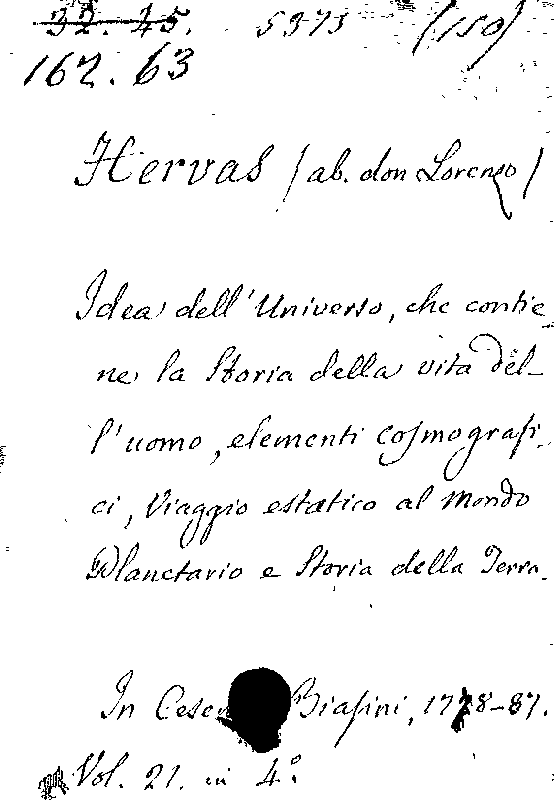 32. 45. 5373 (150)
162. 63
Hervas (ab. don Lorenzo)
Idea dell'Universo, che contie_
ne la Storia della vita del_
l'uomo, elementi cosmografi_
ci, Viaggio estatico al mondo
Planetario e Storia della Terra.
In Biasini, 1778-87.
Vol. 21. in 4°.